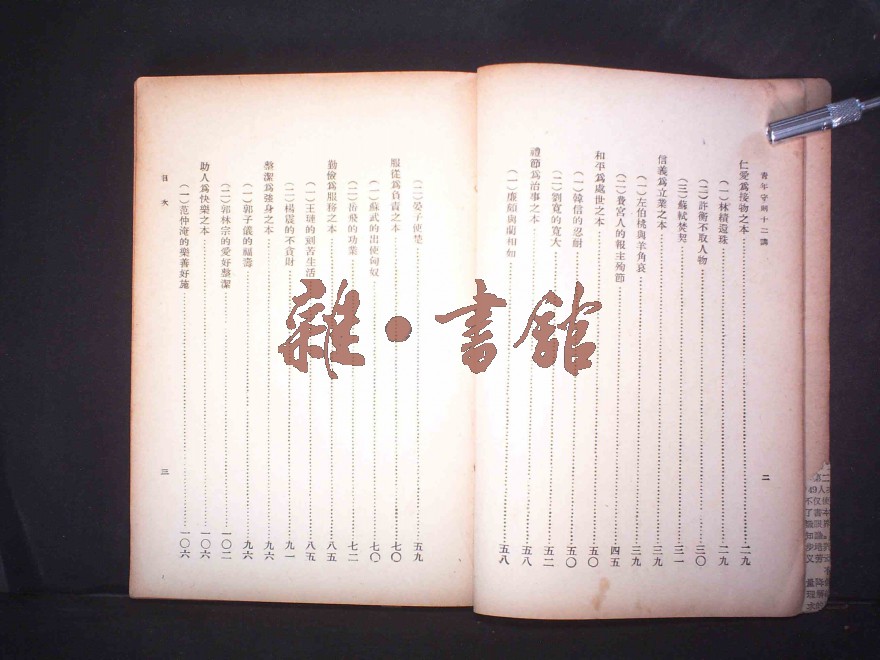 青年守則十二講
仁愛爲接物之本 二九
(一)林積還珠 二九
(二)許衡不取人物 三〇
(三)蘇軾焚契 三一
信義爲立業之本 三九
(一)左伯桃與羊角哀 三九
(二)費宮人的報主殉節 四五
和平爲處世之本 五〇
(一)韓信的忍耐 五〇
(二)劉寬的寬大 五二
禮節爲治事之本 五八
(一)廉頗與藺相如 五八
二
(二)晏子使楚 五九
服從爲負責之本 七〇
(一)蘇武的出使匈奴 七〇
(二)岳飛的功業 七二
勤儉爲服務之本 八五
(一)王璉的刻苦生活 八五
(二)楊震的不貪財 九一
整潔爲強身之本 九六
(一)郭子儀的福壽 九六
(二)郭林宗的愛好整潔 一〇二
助人爲快樂之本 一〇六
(一)范仲淹的樂善好施 一〇六
目次
三
雜·書館